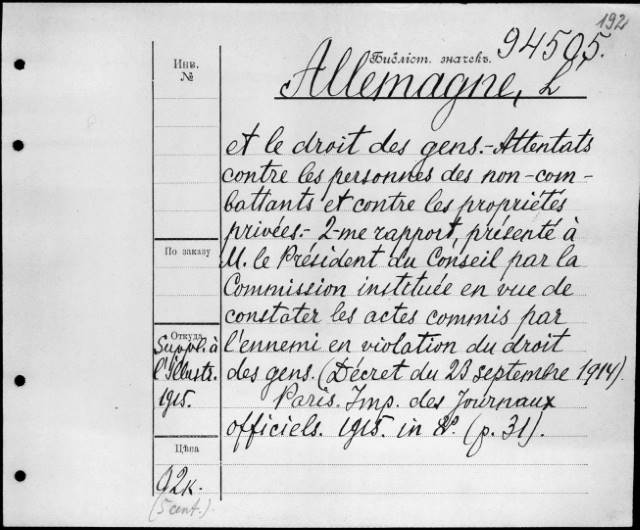 192
94505.
Инв.
№
Библіот. значекъ.
Allemagne, L'
et le droit des gens.- Attentats
contre les personnes des non-com-
battants et contre les propriétés
privées.- 2-me rapport, présenté à
M. le Président du Conseil par la
Commission instituée en vue de
constater les actes commis par
l'ennemi en violation du droit
des gens. (Décret du 23 septembre 1914).
Paris. Imp. des Journaux
officiels. 1915. in 8°. (p. 31).
По заказу
Откуда
Suppl. à
l'Illustr.
1915.
Цѣна
92к.
(5 cent.).